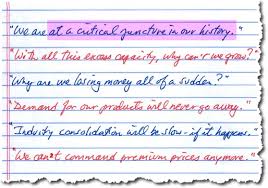 "We are at a critical juncture in our history."
"With all this excess capacity, why can't we grow?"
"Why are we losing money all of a sudden?"
"Demand for our products will never go away."
"Industry consolidation will be slow - if it happens."
"We can't command premium prices anymore."